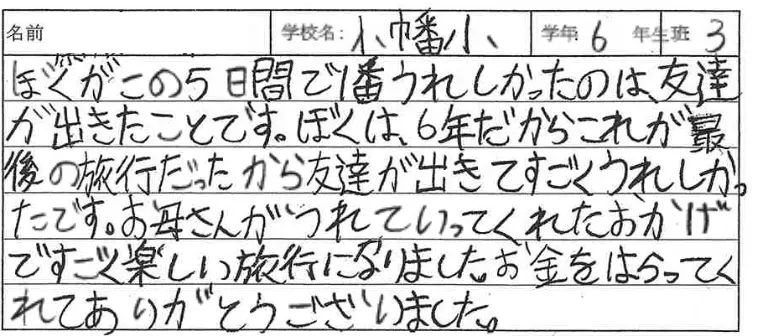 名前 学校名: 小幡小 学年 6 年生班 3
ぼくがこの5日間で1番うれしかったのは、友達
が出きたことです。ぼくは、6年だからこれが最
後の旅行だったから友達が出きてすごくうれしかっ
たです。お母さんがつれていってくれたおかげ
ですごく楽しい旅行になりました。お金をはらってく
れてありがとうございました。